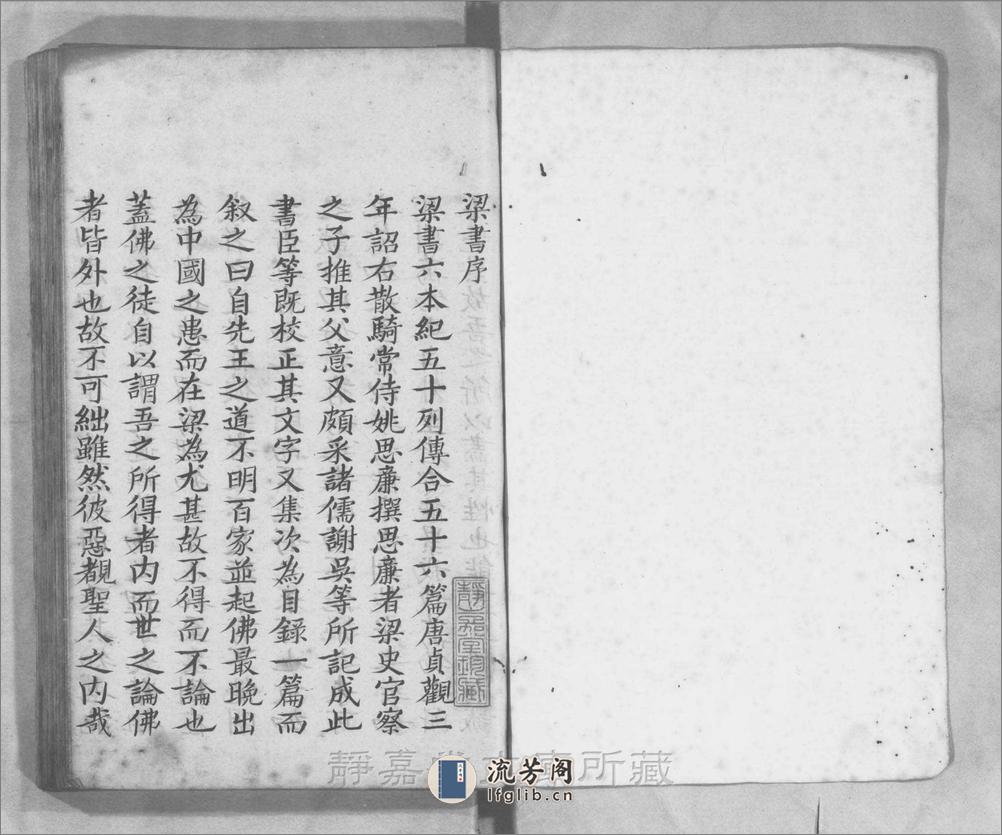 梁書序
梁書六本紀五十列傳合五十六篇唐貞觀三
年詔右散騎常侍姚思廉撰思廉者梁史官察
之子推其父意又頗采諸儒謝吳等所記成此
書臣等既校正其文字又集次為目錄一篇而
叙之曰自先王之道不明百家並起佛最晚出
為中國之患而在梁為尤甚故不得而不論也
蓋佛之徒自以謂吾之所得者内而世之論佛
者皆外也故不可絀雖然彼惡覩聖人之内哉
靜嘉堂珍藏
靜嘉堂文庫所藏
流芳阁
lfglib.cn